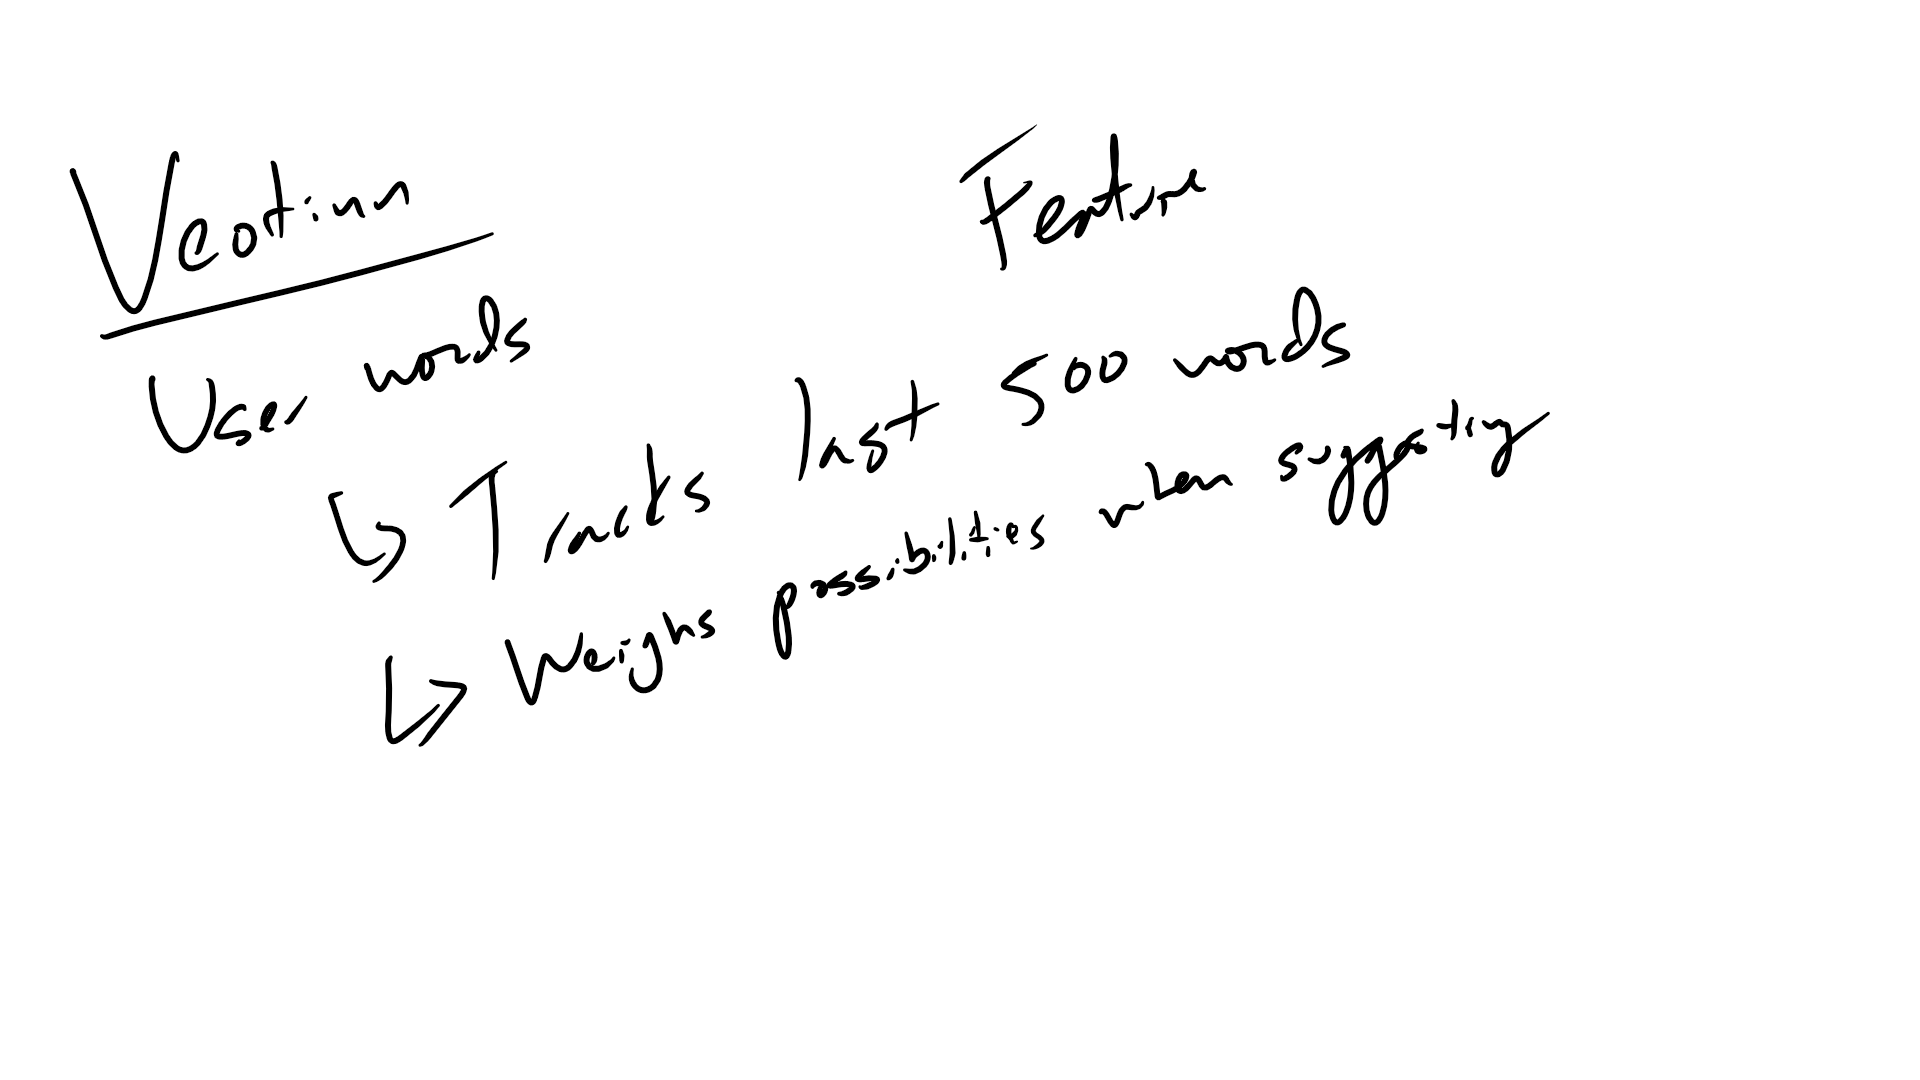 Veotinn
Feature
User words
↳ Tracks last 500 words
↳ Weighs possibilities when suggesting